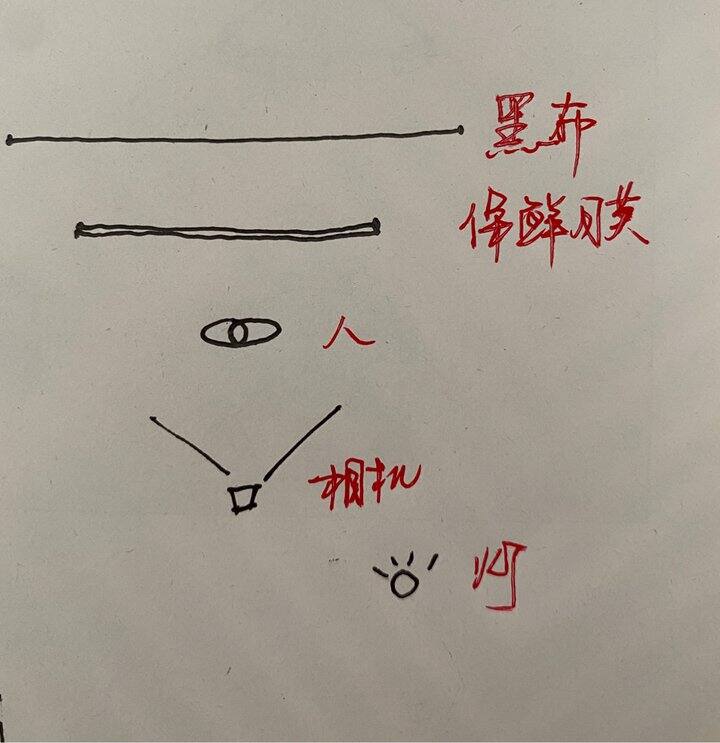 黑布
保鲜膜
人
相机
灯